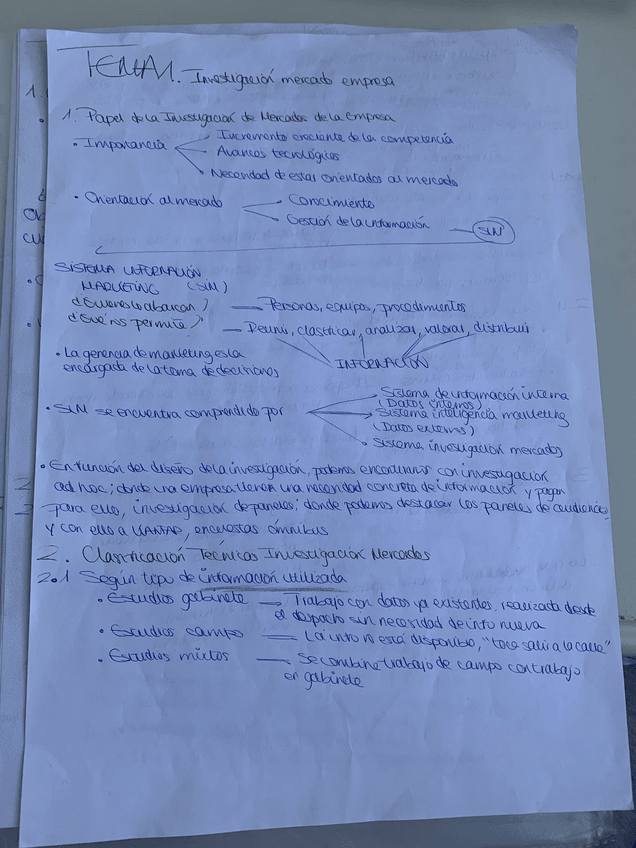 TEMA 1. Investigación mercado empresa
1. Papel de la Investigación de Mercados de la Empresa
• Importancia
Incremento creciente de la competencia
Avances tecnológicos
Necesidad de estar orientados al mercado
• Orientación al mercado
Conocimiento
Gestión de la información
SIM
SISTEMA INFORMACIÓN
MARKETING (SIM)
¿Quienes lo abarcan?
Personas, equipos, procedimientos
¿Qué nos permite?
Reunir, clasificar, analizar, valorar, distribuir
INFORMACIÓN
• La gerencia de marketing es la
encargada de la toma de decisiones
• SIM se encuentra comprendido por
Sistema de información interna
(Datos internos)
Sistema inteligencia marketing
(Datos externos)
Sistema investigación mercados
• En función del diseño de la investigación, podemos encontrarnos con investigación
ad hoc; donde una empresa tienen una necesidad concreta de información y pagan
para ello, investigación de paneles; donde podemos destacar los paneles de audiencia
y con ello a KANTAR, encuestas ómnibus
2. Clasificación Técnicas Investigación Mercados
2.1 Según tipo de información utilizada
• Estudios gabinete — Trabajo con datos ya existentes, realizada desde
el despacho sin necesidad de info nueva
• Estudios campo — La info no está disponible, "toca salir a la calle"
• Estudios mixtos — Se combina trabajo de campo con trabajo
en gabinete